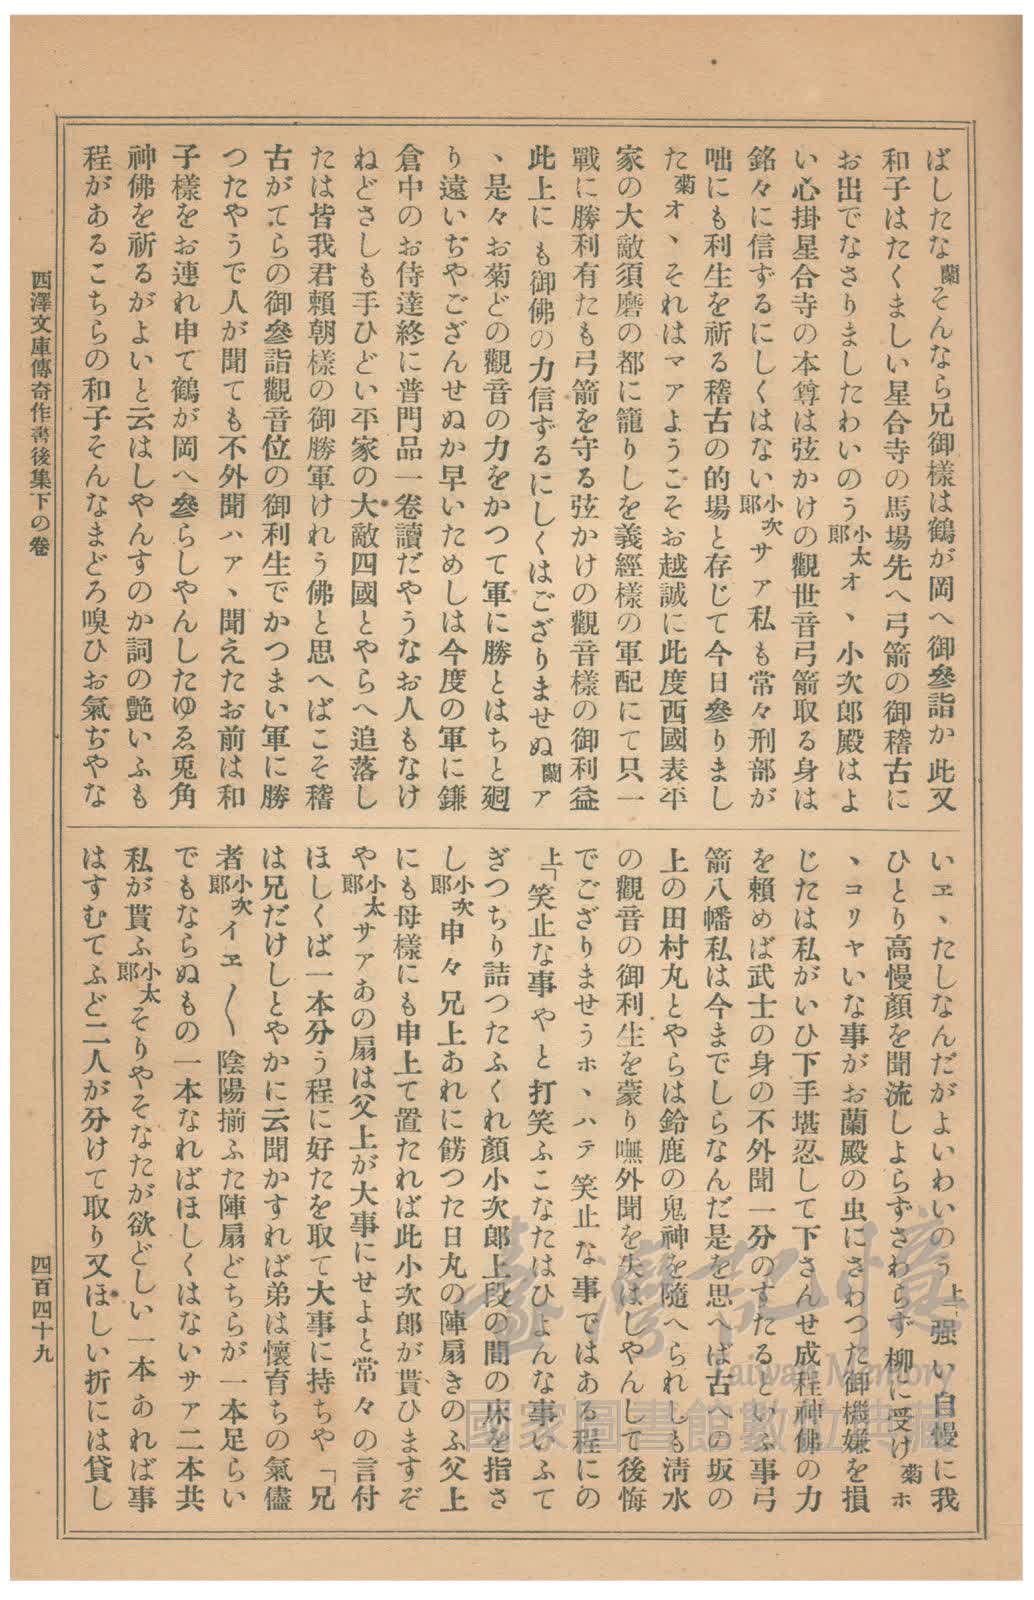 ばしたな蘭そんなら兄御樣は鶴が岡へ御參詣か此又
和子はたくましい星合寺の馬場先へ弓箭の御稽古に
お出でなさりましたわいのう小太郎オヽ小次郎殿はよ
い心掛星合寺の本尊は弦かけの觀世音弓箭取る身は
銘々に信ずるにしくはない小次郎サア私も常々刑部が
咄にも利生を祈る稽古の的場と存じて今日參りまし
た菊オヽそれはマアようこそお越誠に此度西國表平
家の大敵須磨の都に籠りしを義經樣の軍配にて只一
戰に勝利有たも弓箭を守る弦かけの觀音樣の御利益
此上にも御佛の力信ずるにしくはござりませぬ蘭ア
ヽ是々お菊どの觀音の力をかつて軍に勝とはちと廻
り遠いぢやござんせぬか早いためしは今度の軍に鎌
倉中のお侍達終に普門品一卷讀だやうなお人もなけ
ねどさしも手ひどい平家の大敵四國とやらへ追落し
たは皆我君賴朝樣の御勝軍けれう佛と思へばこそ稽
古がてらの御參詣觀音位の御利生でかつまい軍に勝
つたやうで人が聞ても不外聞ハアヽ聞えたお前は和
子樣をお連れ申て鶴が岡へ參らしやんしたゆゑ兎角
神佛を祈るがよいと云はしやんすのか詞の艶いふも
程があるこちらの和子そんなまどろ嗅ひお氣ぢやな
いヱヽたしなんだがよいわいのう上「强い自慢に我
ひとり高慢顏を聞流しよらずさわらず柳に受け菊ホ
ヽコリヤいな事がお蘭殿の虫にさわつた御機嫌を損
じたは私がいひ下手堪忍して下さんせ成程神佛の力
を賴めば武士の身の不外聞一分のすたるといふ事弓
箭八幡私は今までしらなんだ是を思へば古への坂の
上の田村丸とやらは鈴鹿の鬼神を隨へられしも淸水
の觀音の御利生を蒙り嘸外聞を失はしやんして後悔
でござりませうホヽハテ笑止な事ではある程にの
上「笑止な事やと打笑ふこなたはひよんな事いふて
ぎつちり詰つたふくれ顏小次郎上段の間の床を指さ
し小次郎申々兄上あれに餝つた日丸の陣扇きのふ父上
にも母樣にも申上て置たれば此小次郎が貰ひますぞ
や小太郎サアあの扇は父上が大事にせよと常々の言付
ほしくば一本分う程に好たを取て大事に持ちや「兄
は兄だけしとやかに云聞かすれば弟は懷育ちの氣儘
者小次郎イヱ〳〵陰陽揃ふた陣扇どちらが一本足らい
でもならぬもの一本なればほしくはないサア二本共
私が貰ふ小太郎そりやそなたが欲どしい一本あれば事
はすむてふど二人が分けて取り又ほしい折には貸し
西澤文庫傳奇作書後集下の卷
四百四十九
臺灣記憶
Taiwan Memory
國家圖書館數位典藏